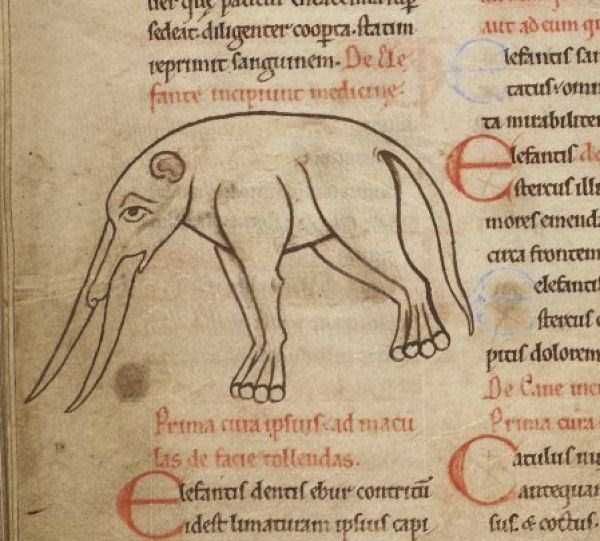 sedeat. diligenter cooperta. statim
reprimit sanguinem. De Ele
fante incipiunt medicine.
Prima cura ipsius. ad macu
las de facie tollendas.
Elefantis dentis ebur contritū
idest limaturam ipsius capi
aut ad cum
lefantis
tatus
ta mirabiliter
Elefantis de
stercus illi
mores emenda
circa frontem
elefantis
stercus
pitis dolorem
De Cane inci
Prima cura
Catulus
antequam
sus. & coctus.